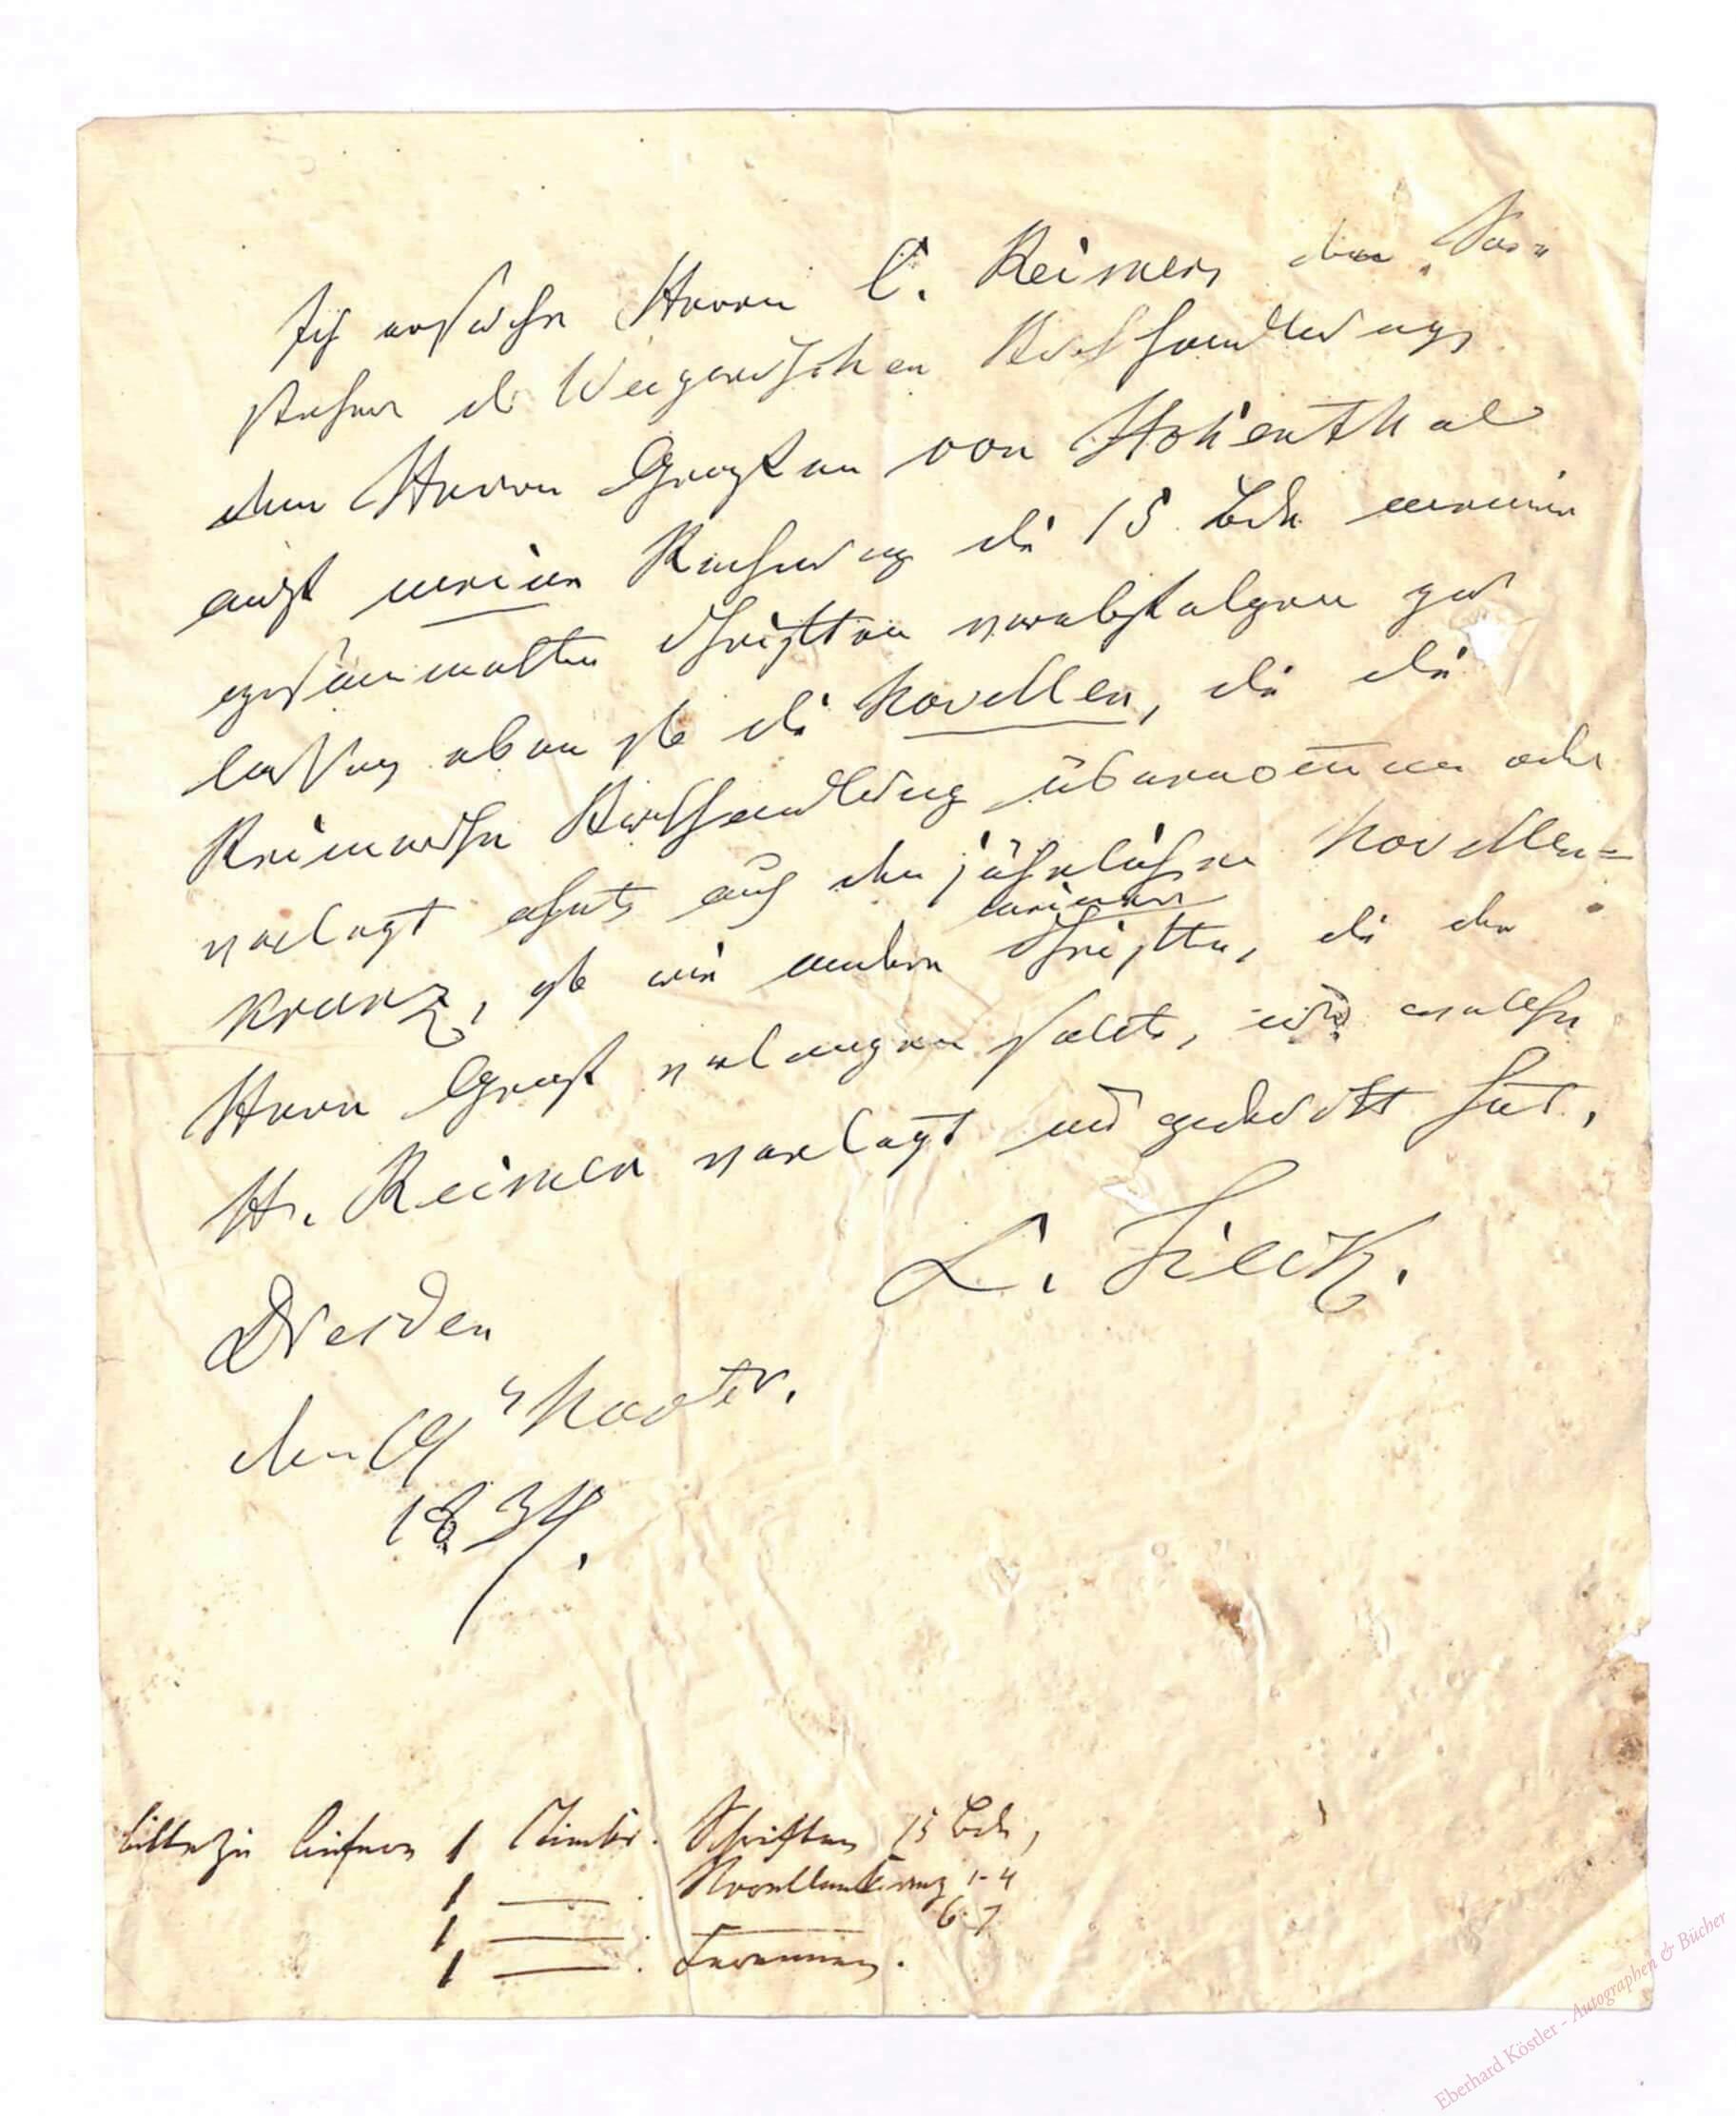 Ich ersuche Herrn C. Reimer, den Vor=
steher der Weigandschen Buchhandlung,
dem Herrn Grafen von Hohenthal
auf meine Rechnung die 15 Bde meiner
gesammelten Schriften verabfolgen zu
lassen, eben so die Novellen, die die
Reimersche Buchhandlung übernommen oder
verlegt, ohne auch den jährlichen Novellen=
kranz, so wie andere meiner Schriften, die der
Herr Graf verlangen sollte, und welche
H. Reimer verlegt und gedruckt hat.
L. Tieck.
Dresden
den 19 Novbr.
1834.
bitte zu liefern 1 Tiecks Schriften 15 Bde,
1 — Novellenkranz 1-4
1 — 6.7
1 —
Eberhard Köstler - Autographen & Bücher